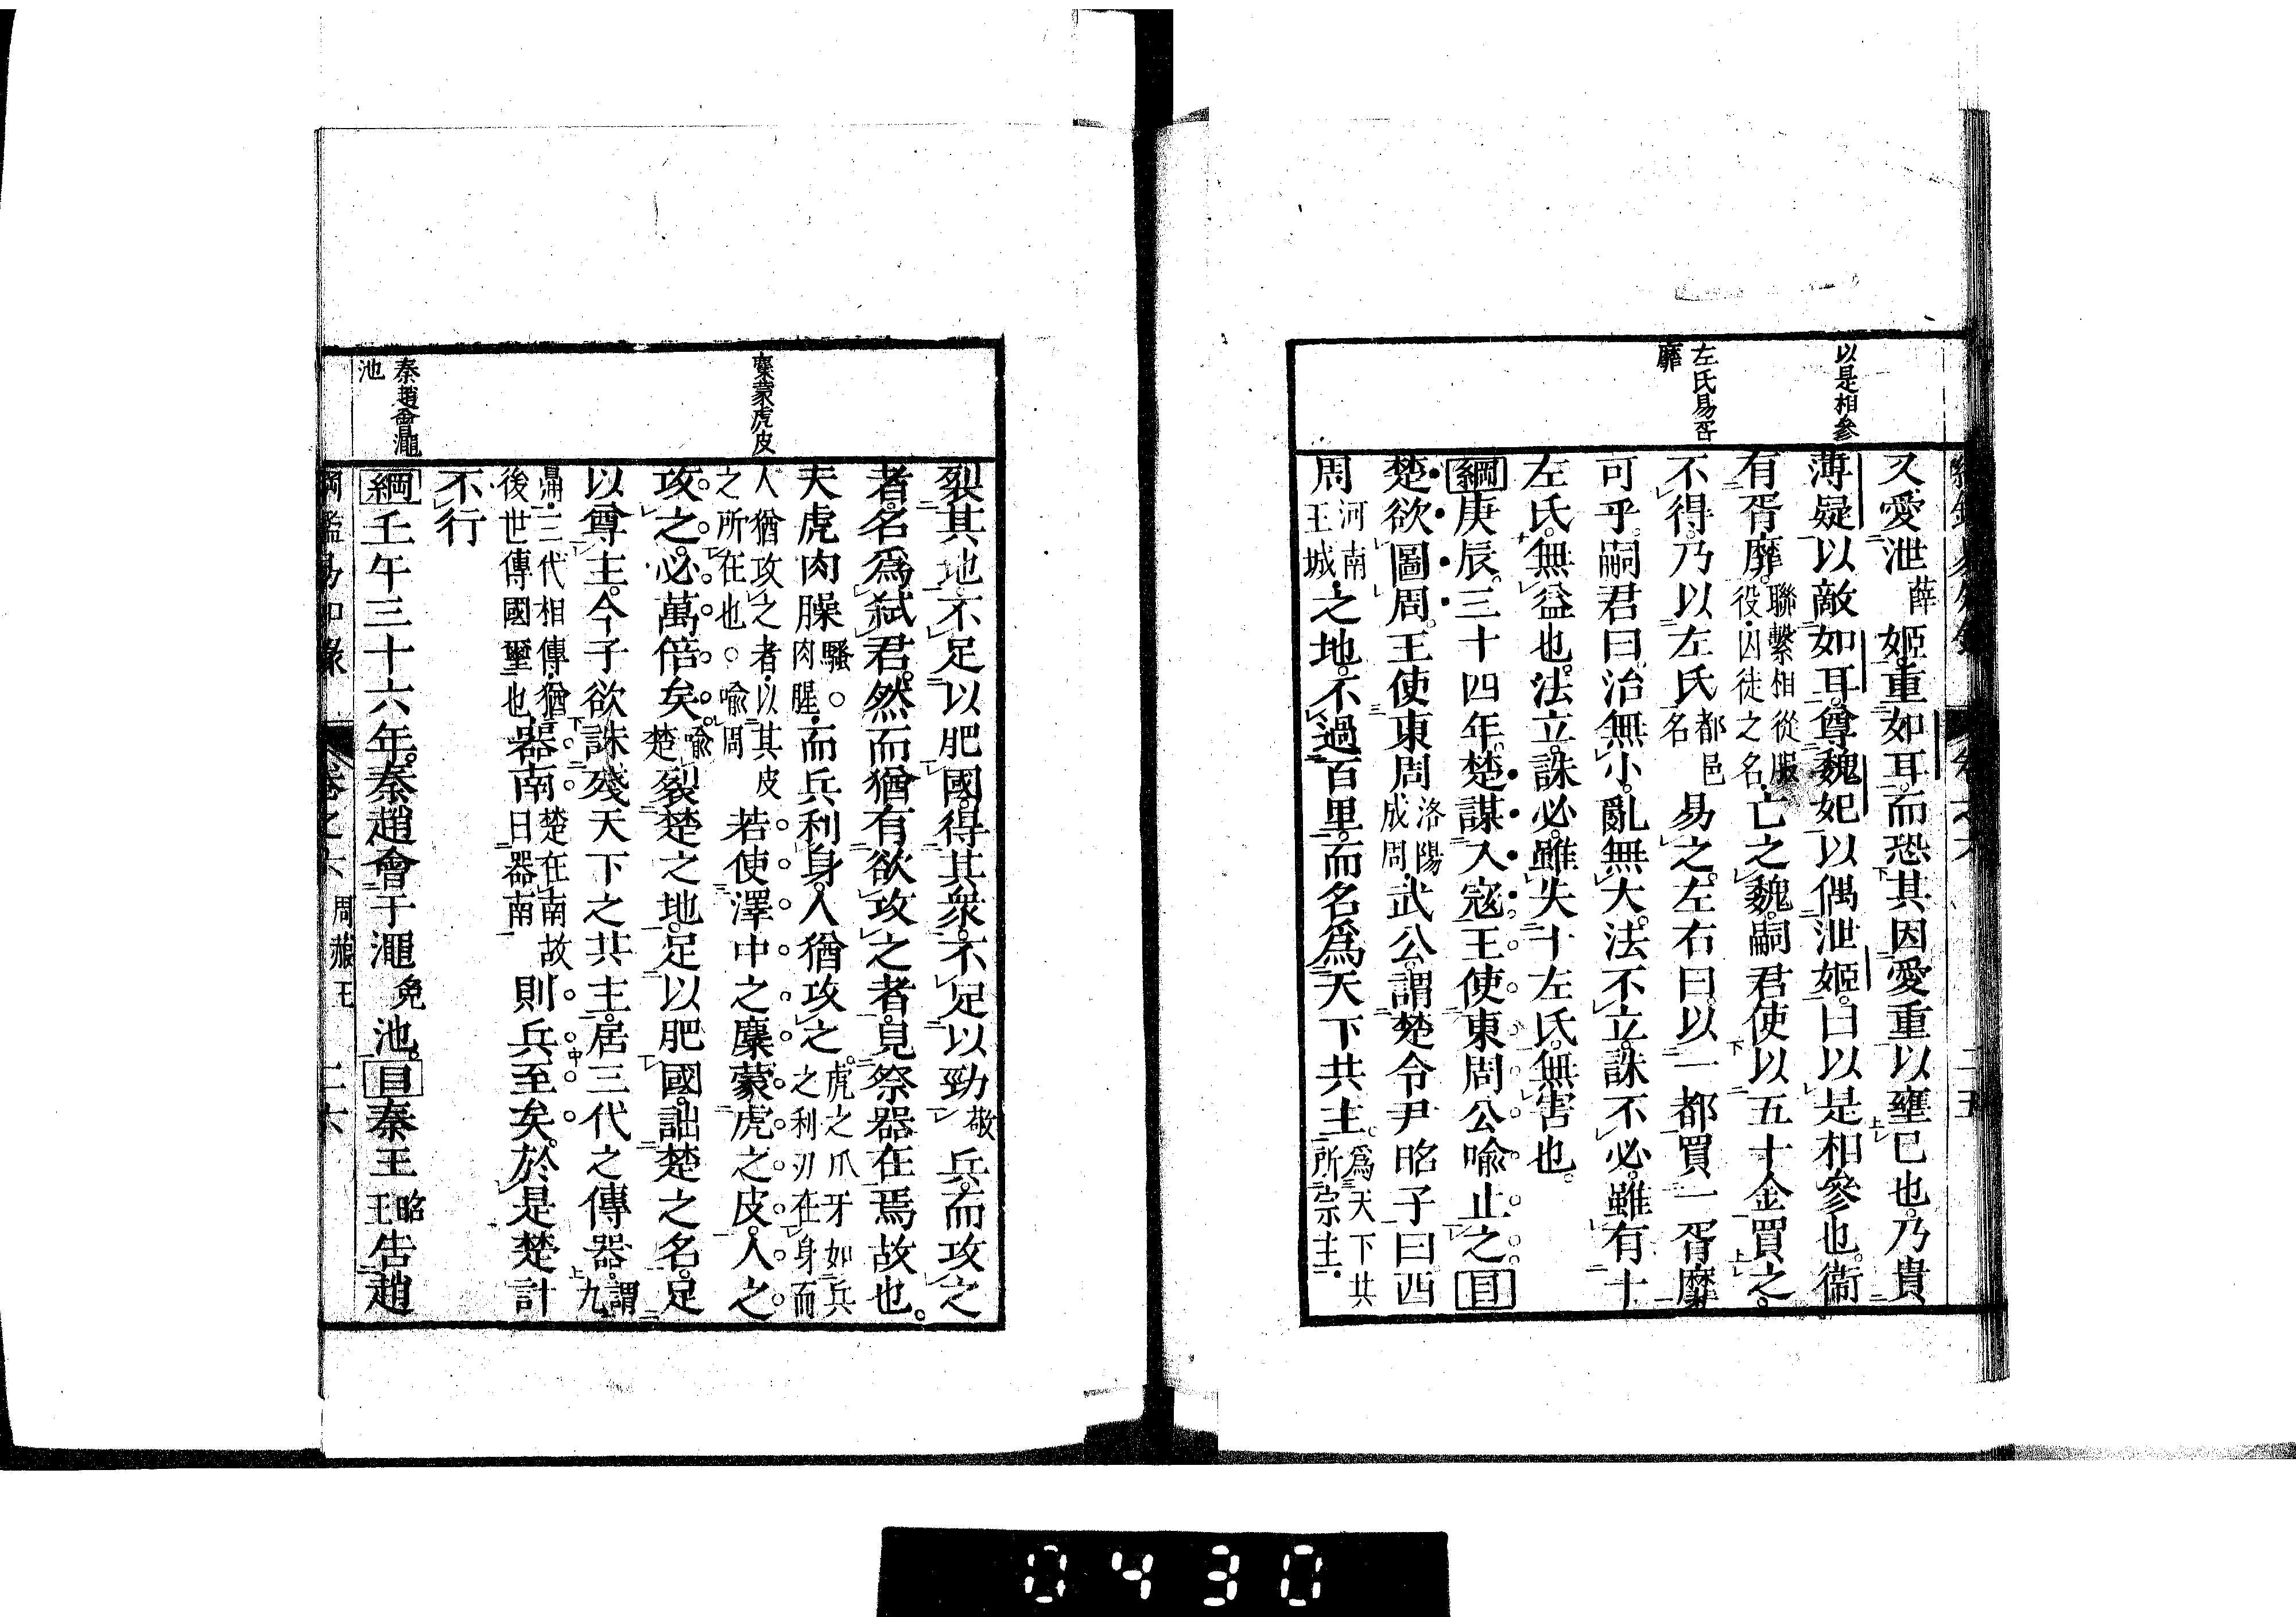 以是相參
左氏易胥
靡
又愛泄薛姬重如耳而恐其因愛重以壅已也乃貴
薄疑以敵如耳尊魏妃以偶泄姬曰以是相參也衞
有胥靡聯繫相從服役囚徒之名亡之魏嗣君使以五十金買之
不得乃以左氏都邑名易之左右曰以一都買一胥靡
可乎嗣君曰治無小亂無大法不立誅不必雖有十
左氏無益也法立誅必雖失十左氏無害也
綱庚辰三十四年楚謀入寇王使東周公喩止之目
楚欲圖周王使東周洛陽成周武公謂楚令尹昭子曰西
周河南王城之地不過百里而名爲天下共主爲天下共所宗主
麋蒙虎皮
秦趙會澠
池
裂其地不足以肥國得其衆不足以勁敬兵而攻之
者名爲弑君然而猶有欲攻之者見祭器在焉故也
夫虎肉臊騷肉腥而兵利身人猶攻之虎之爪牙如兵之利刃在身而
人猶攻之者以其皮之所在也喩周若使澤中之麋蒙虎之皮人之
攻之必萬倍矣喩楚裂楚之地足以肥國詘楚之名足
以尊主今子欲誅殘天下之共主居三代之傳器謂九
鼎三代相傳猶後世傳國璽也器南楚在南故曰器南則兵至矣於是楚計
不行
綱壬午三十六年秦趙會于澠免池目秦王昭王告趙
綱鑑易知錄 卷之六 周赧王 二六
0430